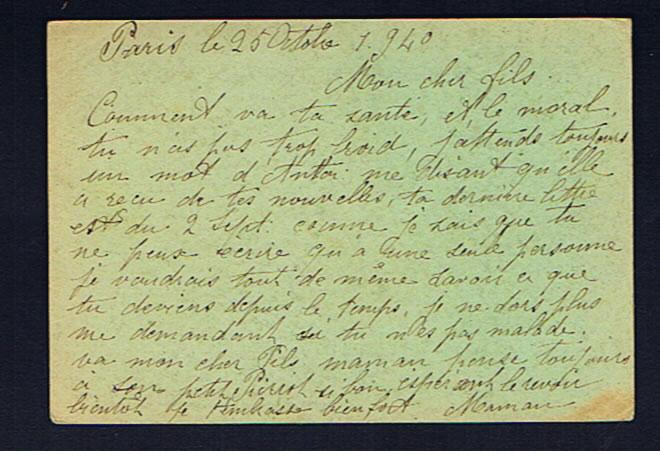 Paris le 25 Octobre 1940
Mon cher fils.
Comment va ta santé, et le moral,
tu n'as pas trop froid, j'attends toujours
un mot d'Anto me disant qu'elle
a reçu de tes nouvelles, ta dernière lettre
est du 2 Sept. comme je sais que tu
ne peux ecrire qu'à une seule personne
je voudrais tout de même savoir ce que
tu deviens depuis le temps, je ne dors plus
me demandant si tu n'es pas malade.
va mon cher Fils maman pense toujours
à son petit Pierrot si bon, espérant le revoir
bientôt je t'embrasse bien fort. Maman